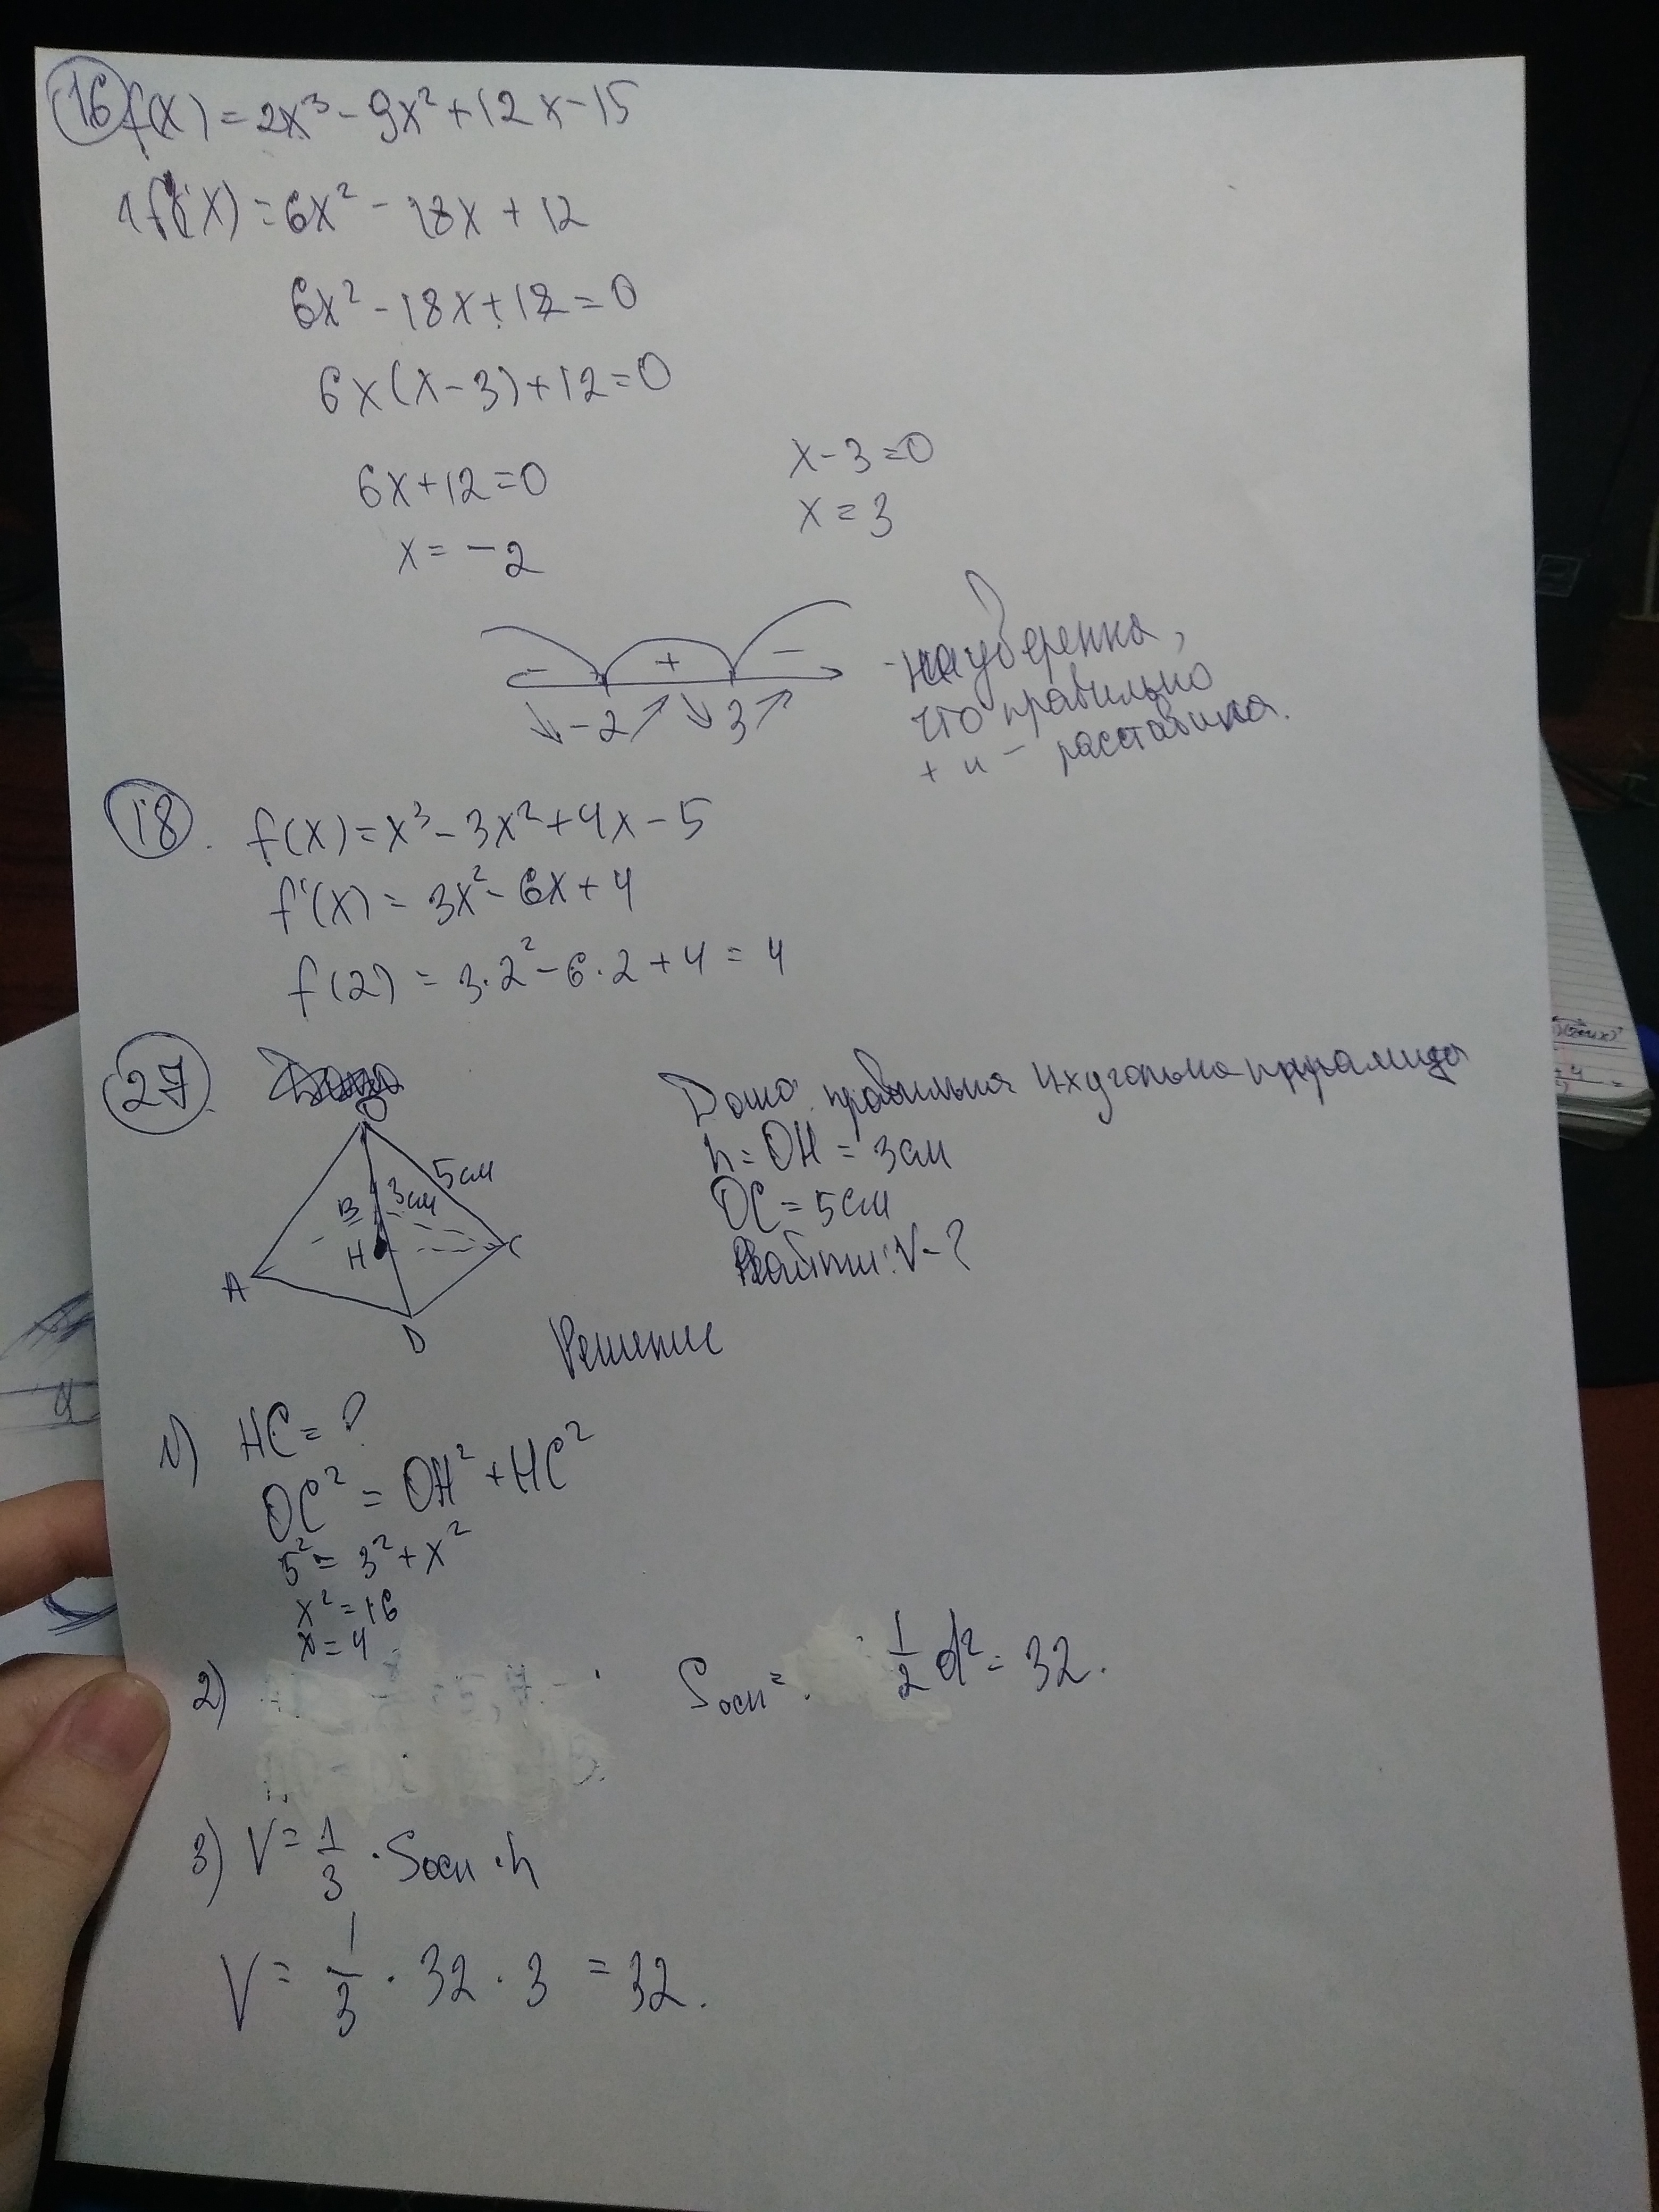 16 f(x) = 2x³ - 9x² + 12x - 15
f'(x) = 6x² - 18x + 12
6x² - 18x + 12 = 0
6x(x - 3) + 12 = 0
6x + 12 = 0
x = -2
x - 3 = 0
x = 3
- + -
-2 3
- не уверенна,
что правильно
+ и - расставила.
18. f(x) = x³ - 3x² + 4x - 5
f'(x) = 3x² - 6x + 4
f(2) = 3·2² - 6·2 + 4 = 4
27.
O
5см
B 3см
H
A
C
D
Дано: правильная 4хугольна пирамида
h = OH = 3см
OC = 5см
Найти: V - ?
Решение
1) HC = ?
OC² = OH² + HC²
5² = 3² + x²
x² = 16
x = 4
2) Sосн = 1/2 d² = 32.
3) V = 1/3 · Sосн · h
V = 1/3 · 32 · 3 = 32.